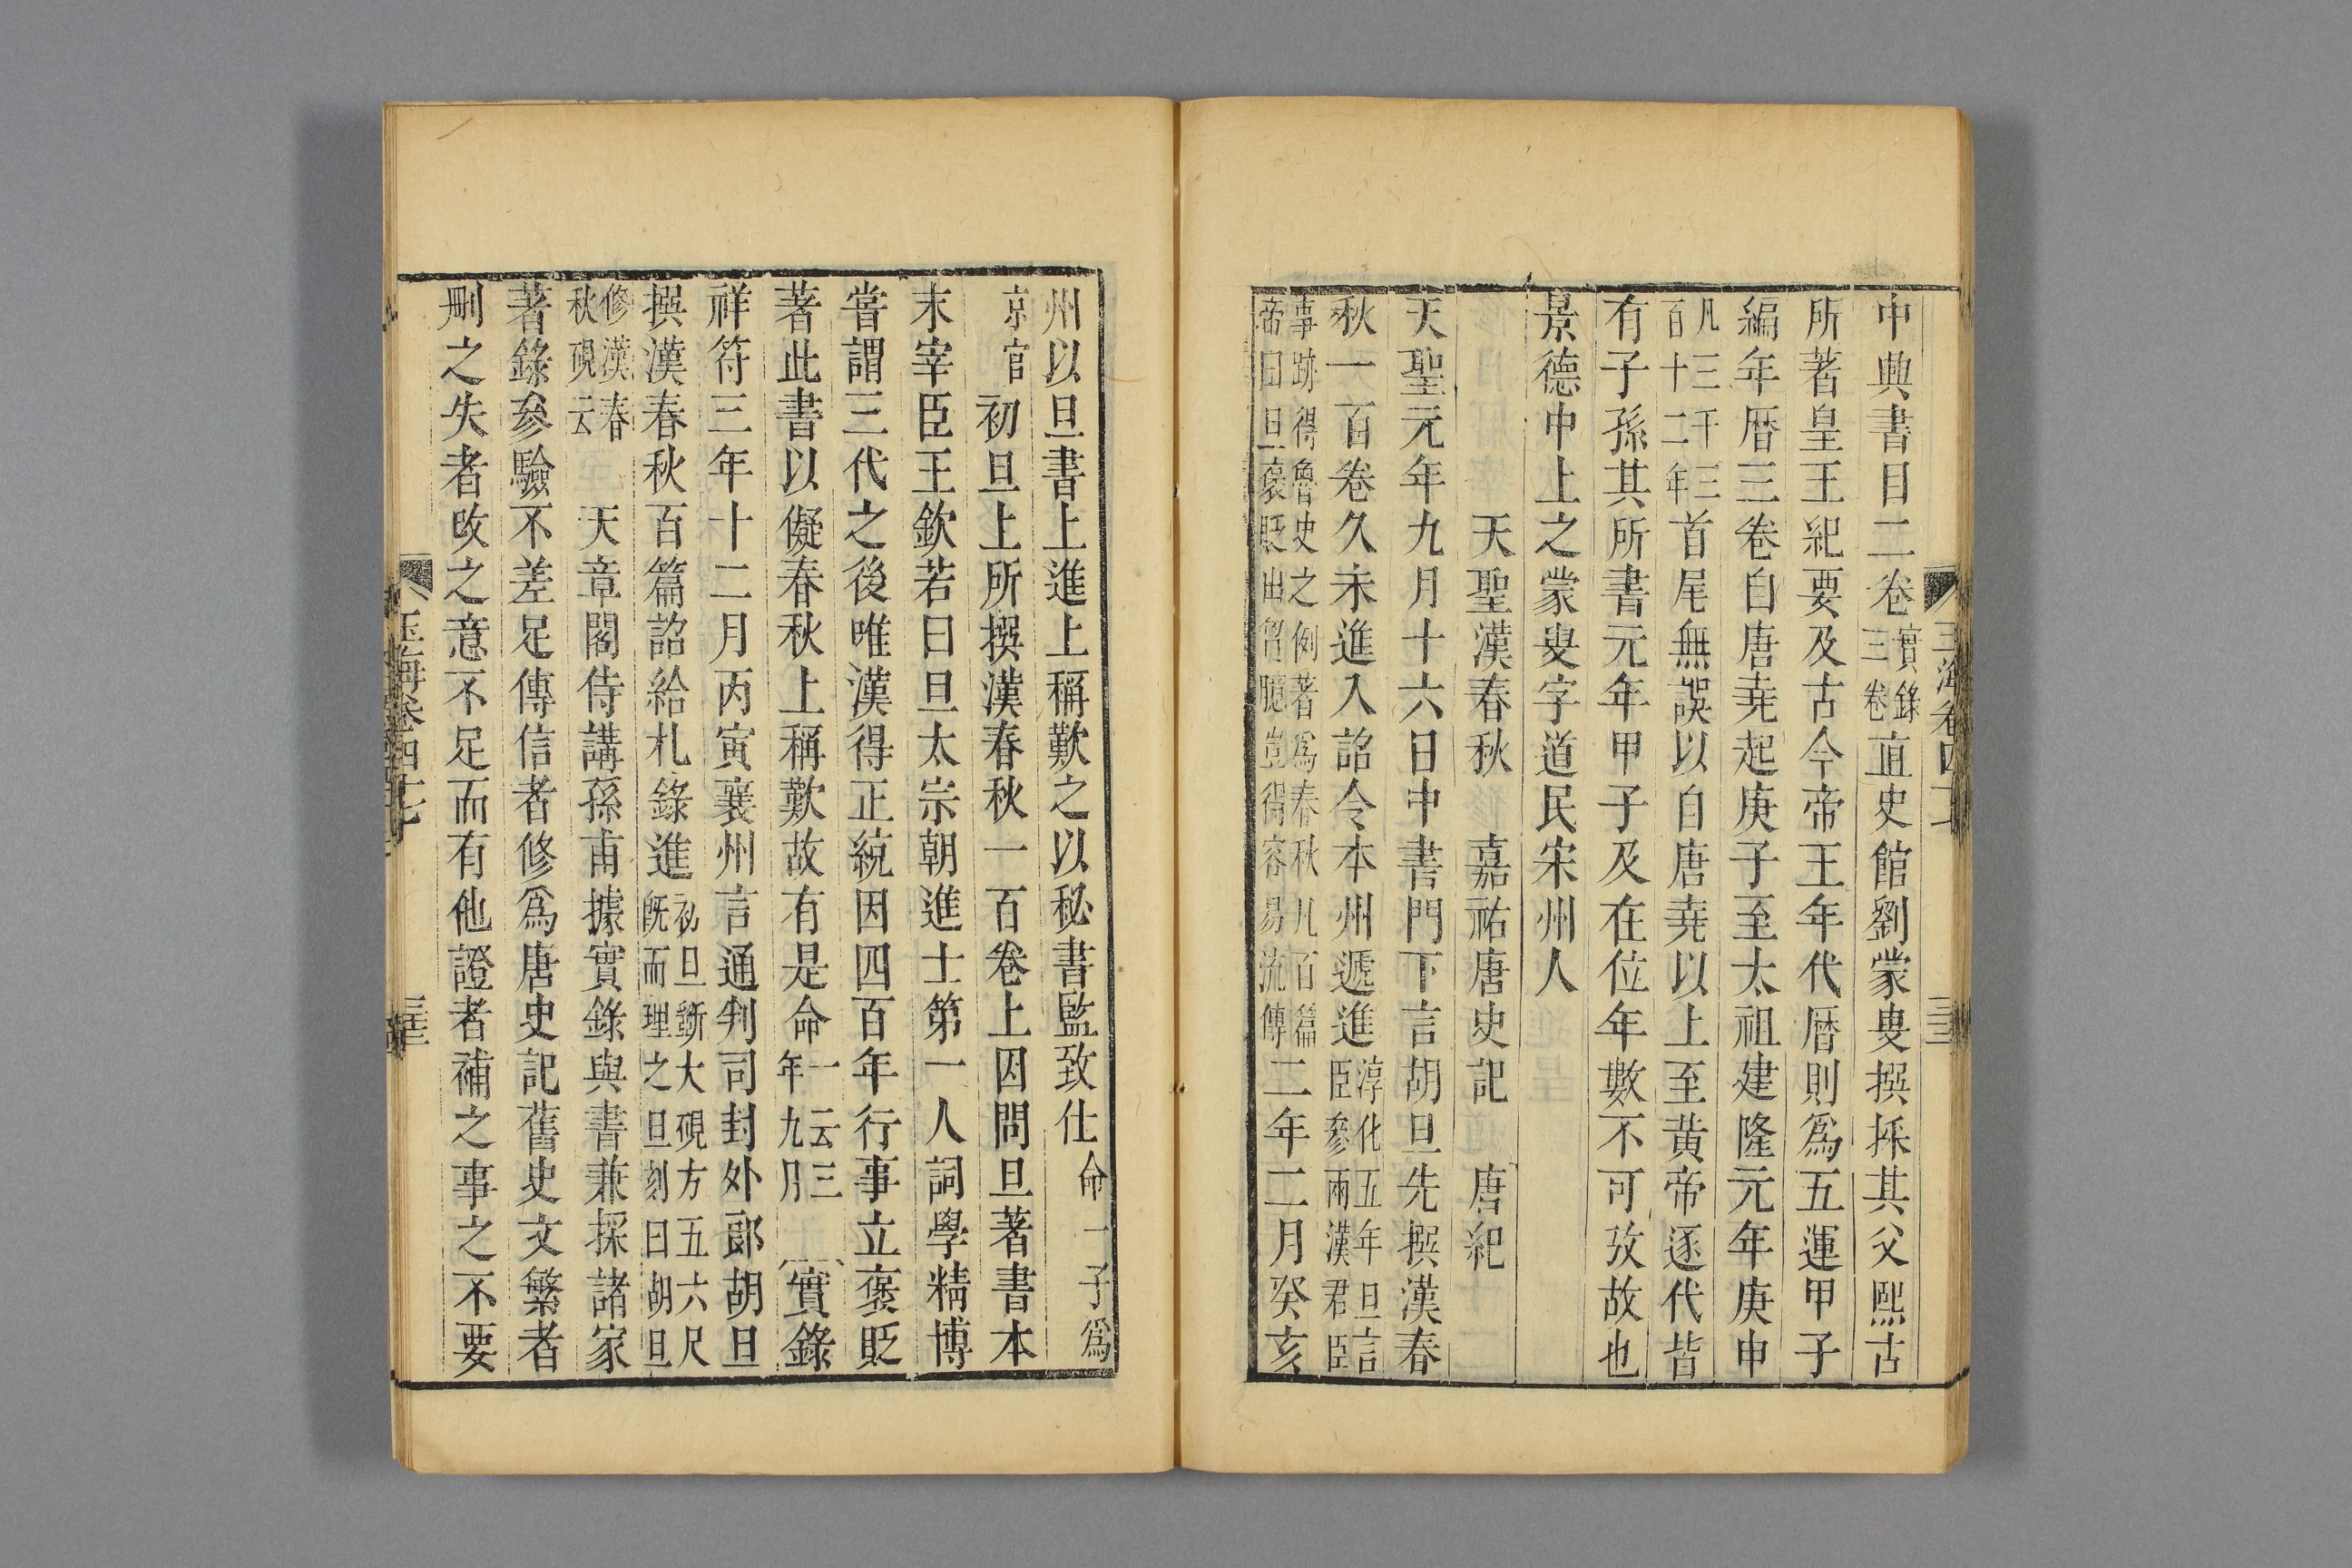 中興書目二卷實錄三卷直史館劉蒙叟撰採其父熙古
所著皇王紀要及古今帝王年代曆則爲五運甲子
編年曆三卷自唐堯起庚子至太祖建隆元年庚申
凡三千三百十二年首尾無誤以自唐堯以上至黃帝逐代皆
有子孫其所書元年甲子及在位年數不可攷故也
景德中上之蒙叟字道民宋州人
天聖漢春秋　嘉祐唐史記　唐紀
天聖元年九月十六日中書門下言胡旦先撰漢春
秋一百卷久未進入詔令本州遞進淳化五年旦言臣參兩漢君臣
事跡得魯史之例著爲春秋凡百篇帝曰旦褒貶出胷臆豈得容易流傳二年二月癸亥
州以旦書上進上稱歎之以秘書監致仕命一子爲
京官初旦上所撰漢春秋一百卷上因問旦著書本
末宰臣王欽若曰旦太宗朝進士第一人詞學精博
嘗謂三代之後唯漢得正統因四百年行事立褒貶
著此書以儗春秋上稱歎故有是命一云三年九月　實錄
祥符三年十二月丙寅襄州言通判司封外郎胡旦
撰漢春秋百篇詔給札錄進初旦斲大硯方五六尺旣而理之旦刻曰胡旦
修漢春秋硯云　天章閣侍講孫甫據實錄與書兼採諸家
著錄參驗不差足傳信者修爲唐史記舊史文繁者
刪之失者改之意不足而有他證者補之事之不要
玉海卷四十七